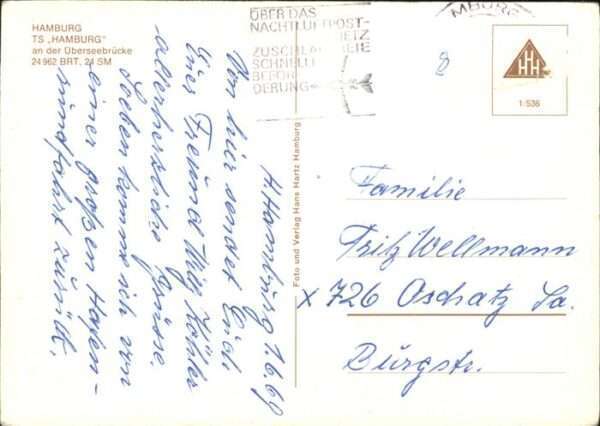 HAMBURG
TS „HAMBURG"
an der Überseebrücke
24 962 BRT, 24 SM
ÜBER DAS
NACHTLUFTPOST-
NETZ
ZUSCHLAGFREIE
SCHNELLE
BEFÖR
DERUNG
MBURG
8
HHH
1:536
H. Hamburg 1.6.69
Von hier sendet Euch
Euer Freund Willy Köhler
allerherzliche Grüsse.
Soeben komme ich von
einer großen Hafen-
rundfahrt zurück.
Foto und Verlag Hans Hartz Hamburg
Familie
Fritz Wellmann
x 726 Oschatz Sa.
Burgstr.